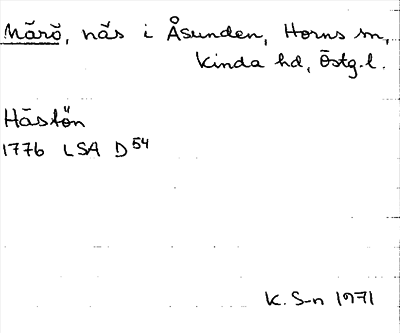 Märö, näs i Åsunden, Horns sn,
Kinda hd, Östg.l.
Hästön
1776 LSA D54
K. S-n 1971